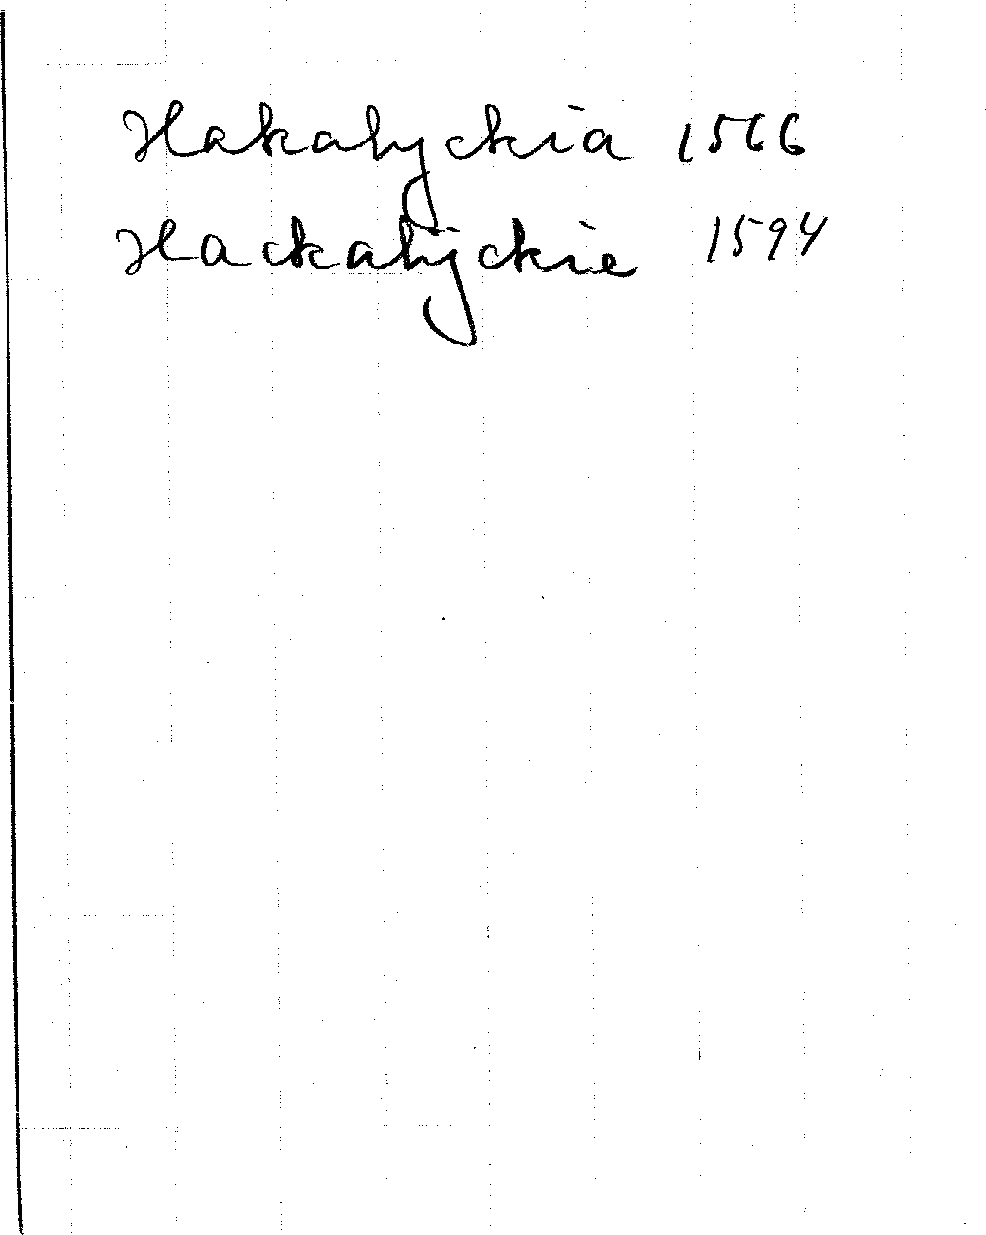 Hakalyckia 1566
Hackalyckie 1594